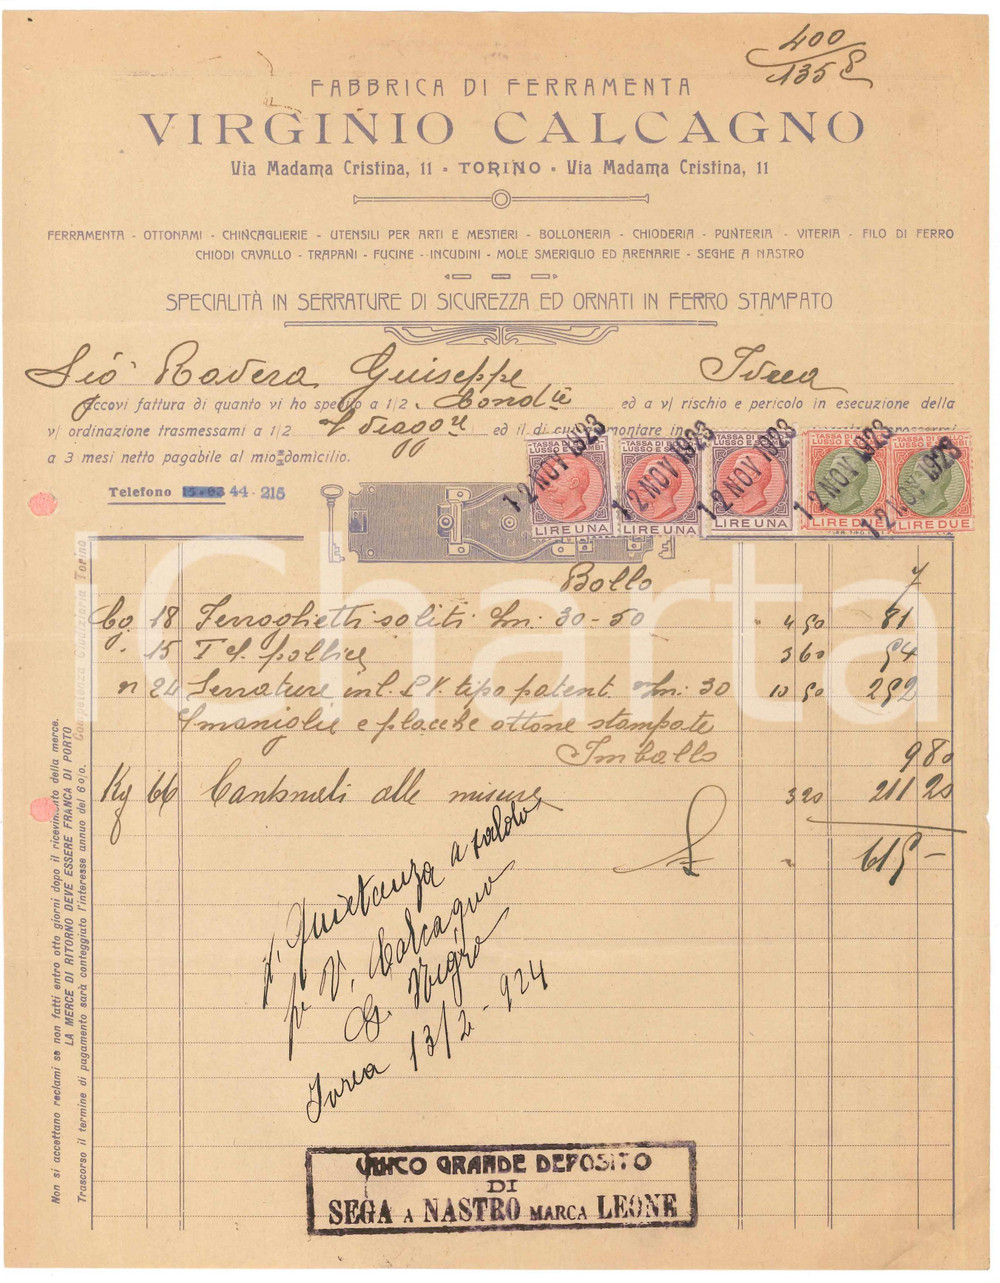 400
1358
FABBRICA DI FERRAMENTA
VIRGINIO CALCAGNO
Via Madama Cristina, 11 - TORINO - Via Madama Cristina, 11
FERRAMENTA - OTTONAMI - CHINCAGLIERIE - UTENSILI PER ARTI E MESTIERI - BOLLONERIA - CHIODERIA - PUNTERIA - VITERIA - FILO DI FERRO
CHIODI CAVALLO - TRAPANI - FUCINE - INCUDINI - MOLE SMERIGLIO ED ARENARIE - SEGHE A NASTRO
SPECIALITÀ IN SERRATURE DI SICUREZZA ED ORNATI IN FERRO STAMPATO
Ravera Giuseppe Ivrea
Eccovi fattura di quanto vi ho spedito a 1/2 Cond.te ed a v/ rischio e pericolo in esecuzione della
v/ ordinazione trasmessami a 1/2 Viagg.re ed il di cui montare in
a 3 mesi netto pagabile al mio domicilio.
TASSA DI BOLLO LUSSO E SCAMBI LIRE UNA
TASSA DI BOLLO LUSSO E SCAMBI LIRE UNA
TASSA DI BOLLO LUSSO E SCAMBI LIRE UNA
TASSA DI BOLLO LUSSO E SCAMBI LIRE DUE
TASSA DI BOLLO LUSSO E SCAMBI LIRE DUE
12 NOV 1923
12 NOV 1923
12 NOV 1923
12 NOV 1923
12 NOV 1923
Telefono 44-215
Bollo 7
Cg. 18 Ferroghietti soliti m: 30-50 4 50 81
" 15 T pollici 3 60 54
n 24 Serrature tipo patent m: 30 10 50 252
Smaniglie e placche ottone stampate
Imballo 9 80
Kg 66 Cantonali alle misure 3 20 211 20
615 -
Quietanza a saldo
p. V. Calcagno
G. Nigro
Ivrea 13/2 - 924
Non si accettano reclami se non fatti entro otto giorni dopo il ricevimento della merce.
LA MERCE DI RITORNO DEVE ESSERE FRANCA DI PORTO
Trascorso il termine di pagamento sarà conteggiato l'interesse annuo del 6 o/o. Competenza Giudiziaria Torino
UNICO GRANDE DEPOSITO
DI
SEGA A NASTRO MARCA LEONE
Charta